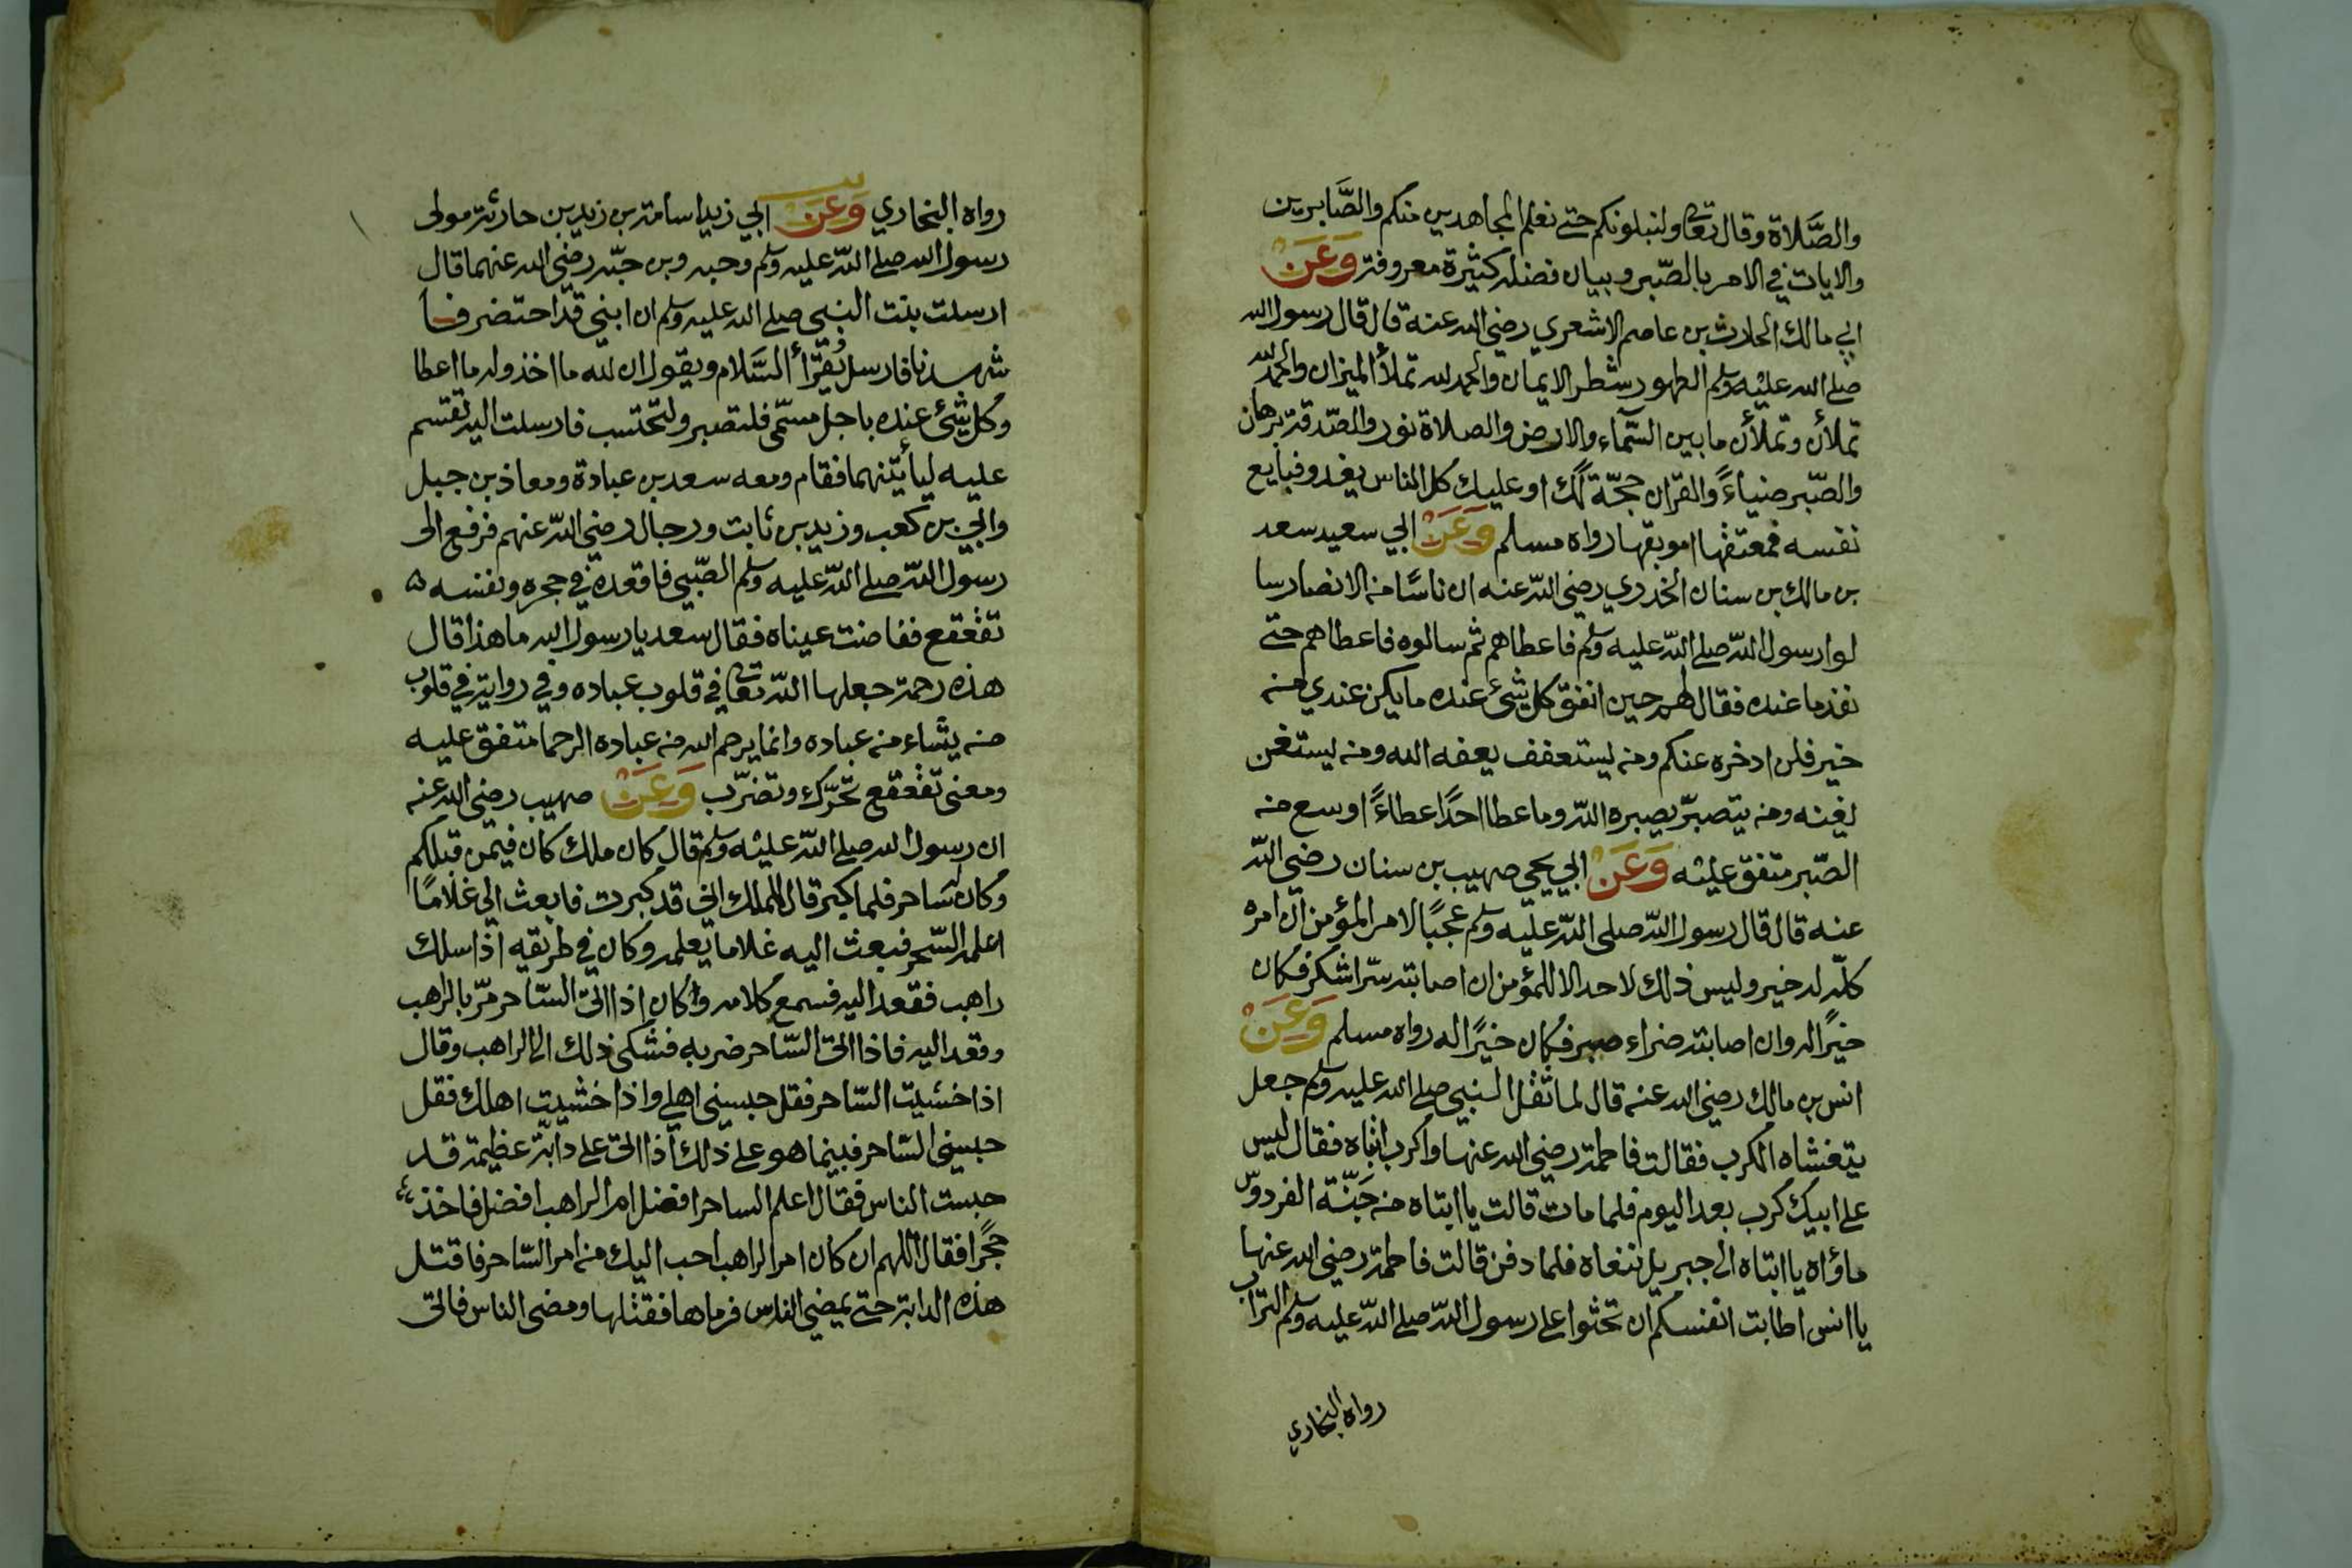 والصَّلاة وقال تعالى ولنبلونكم حتى نعلم المجاهدين منكم والصَّابرين
والايات في الامر بالصّبر وبيان فضله كثيرة معروفة وَعَنْ
ابي مالك الحارث بن عاصم الاشعري رضي الله عنه قال قال رسول الله
صلى الله عليه وسلم الطهور شطر الايمان والحمد لله تملأ الميزان والحمد لله
تملأن وتملأن ما بين السّماء والارض والصلاة نور والصّدقة برهان
والصّبر ضياءً والقران حجّة لك او عليك كل الناس يغدو فبايع
نفسه فمعتقها اموبقها رواه مسلم وَعَنْ ابي سعيد سعد
بن مالك بن سنان الخدري رضي الله عنه ان ناسًا منه الانصار سا
لوا رسول الله صلى الله عليه وسلم فاعطاهم ثم سالوه فاعطاهم حتى
نفذ ما عنده فقال لهم حين انفق كل شئ عنده ما يكن عندي منه
خير فلن ادخره عنكم ومنه يستعفف يعفه الله ومنه يستغن
يغنه ومنه يتصبّر يصبره الله وما عطا احدًا عطاءً اوسع منه
الصّبر متفق عليه وَعَنْ ابي يحيى صهيب بن سنان رضي الله
عنه قال قال رسول الله صلى الله عليه وسلم عجبًا لامر المؤمن ان امره
كلّه له خير وليس ذلك لاحد الا للمؤمن ان اصابته سرّا شكر فكان
خيرًا له وان اصابته ضراء صبر فكان خيرًا له رواه مسلم وَعَنْ
انس بن مالك رضي الله عنه قال لما ثقل النبي صلى الله عليه وسلم جعل
يتغشاه الكرب فقالت فاطمة رضي الله عنها واكرب ابتاه فقال ليس
على ابيك كرب بعد اليوم فلما مات قالت يا ابتاه منه جَنّة الفردوس
مأواه يا ابتاه الى جبريل ننعاه فلما دفن قالت فاطمة رضي الله عنها
يا انس اطابت انفسكم ان تحثوا على رسول الله صلى الله عليه وسلم التراب
رواه البخاري
رواه البخاري وَعَنْ ابي زيد اسامة بن زيد بن حارثة مولى
رسول الله صلى الله عليه وسلم وحبه وبن حبّه رضي الله عنهما قال
ارسلت بنت النبي صلى الله عليه وسلم ان ابني قد احتضر فسا
شهدنا فارسل يُقرَأ السَّلام ويقول ان لله ما اخذ وله ما اعطا
وكل شئ عنده باجل مسمّى فلتصبر ولتحتسب فارسلت اليه تقسم
عليه ليأتينهما فقام ومعه سعد بن عبادة ومعاذ بن جبل
وابيّ بن كعب وزيد بن ثابت ورجال رضي الله عنهم فرفع الى
رسول الله صلى الله عليه وسلم الصّبي فاقعده في حجره ونفسه
تقعقع ففاضت عيناه فقال سعد يا رسول الله ما هذا قال
هذه رحمة جعلها الله تعالى في قلوب عباده وفي رواية في قلوب
منه يشاء منه عباده وانما يرحم الله منه عباده الرحما متفق عليه
ومعنى تقعقع تحرّك وتضرّب وَعَنْ صهيب رضي الله عنه
ان رسول الله صلى الله عليه وسلم قال كان ملك كان فيمن قبلكم
وكان له ساحر فلما كبر قال للملك اني قد كبرت فابعث الي غلامًا
اعلمه السّحر فبعث اليه غلاما يعلمه وكان في طريقه اذا سلك
راهب فقعد اليه فسمع كلامه وكان اذا اتى السّاحر مرّ بالراهب
وقعد اليه فاذا اتى السّاحر ضربه فشكى ذلك الى الراهب وقال
اذا خشيت السّاحر فقل حبسني اهلي واذا خشيت اهلك فقل
حبسني السّاحر فبينما هو على ذلك اذا اتى على دابّة عظيمة قد
حبست الناس فقال اعلم الساحر افضل ام الراهب افضل فاخذ
حجرًا فقال اللهم ان كان امر الراهب احب اليك منه امر السّاحر فاقتل
هذه الدابة حتى يمضي الناس فرماها فقتلها ومضى الناس فاتى